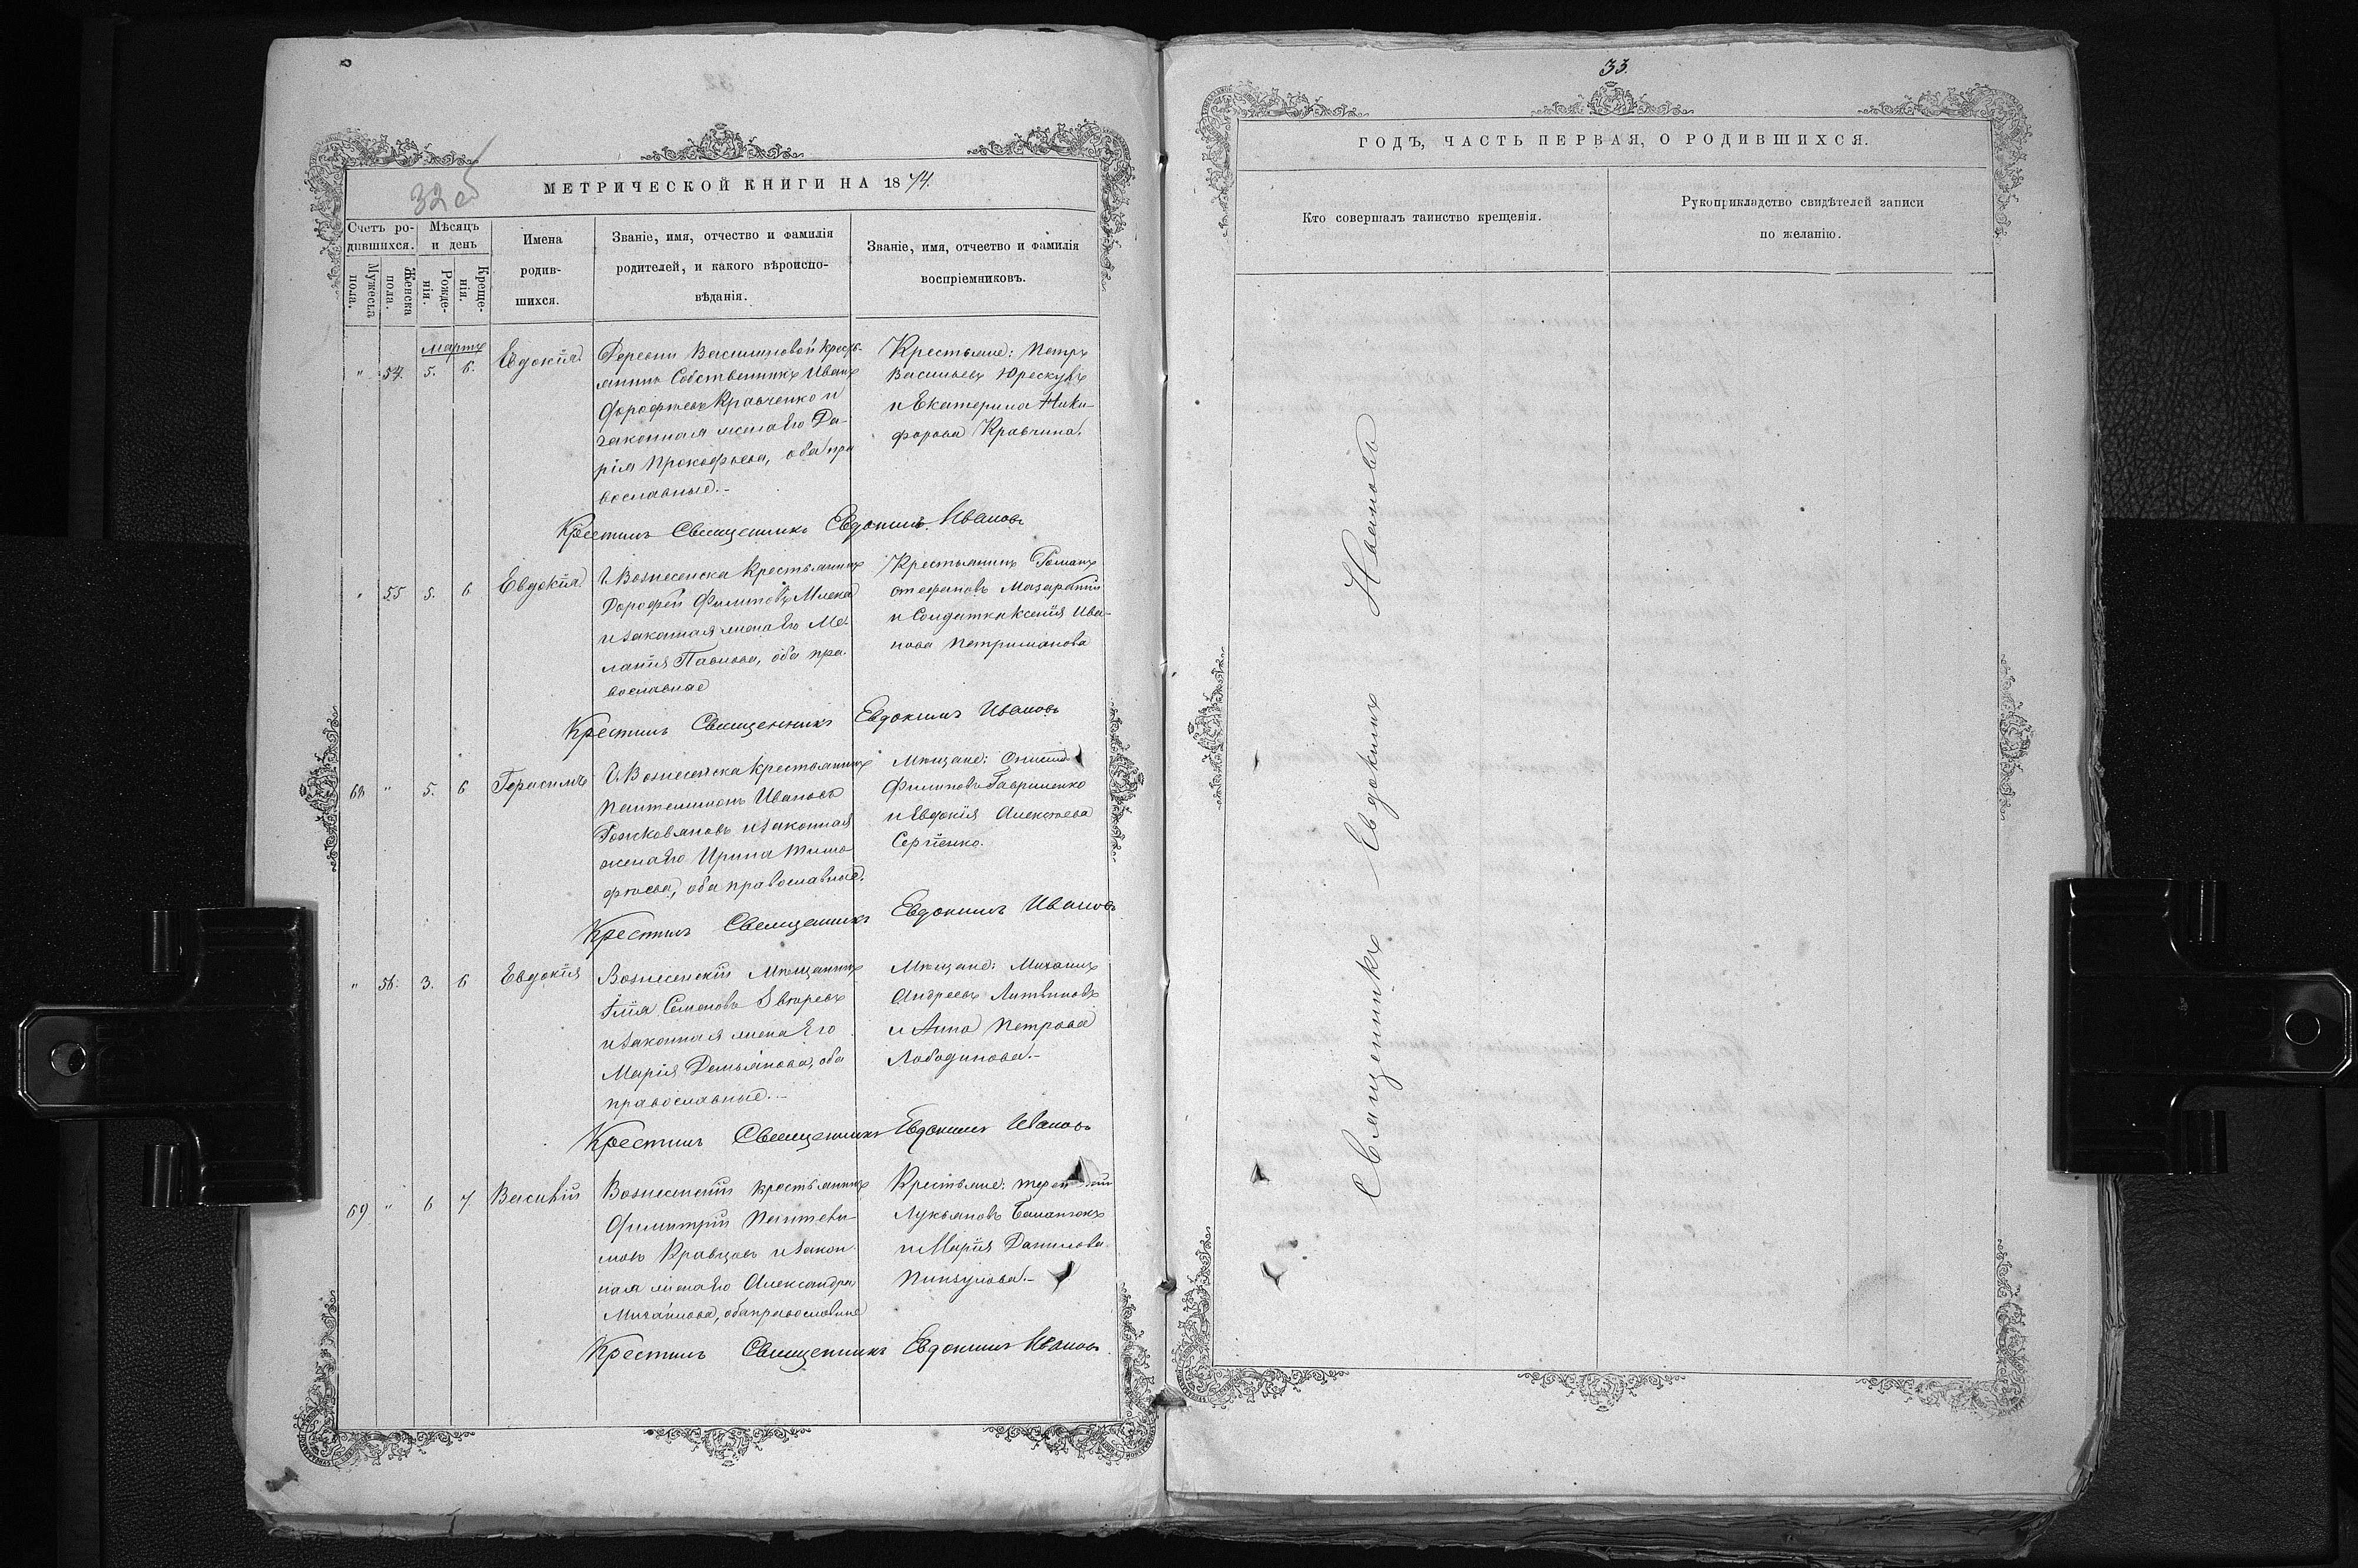 32 об
МЕТРИЧЕСКОЙ КНИГИ НА 1874.
Счетъ ро-
дившихся.
Мужеска
пола.
Женска
пола.
Мѣсяцъ
и день
Рожде-
нія.
Креще-
нія.
Имена
родив-
шихся.
Званіе, имя, отчество и фамилія
родителей, и какого вѣроиспо-
вѣданія.
Званіе, имя, отчество и фамилія
воспріемниковъ.
Мартъ
" 54. 5. 6. Евдокія
Деревни Васильевой кресть-
янинъ Собственникъ Иванъ
Дорофѣевъ Кравченко и
законная жена Его Да-
рія Прокофьева, оба пра
вославные.-
Крестьяне: Петръ
Васильевъ Юрескулъ
и Екатерина Ники-
форова Кравчина.
Крестилъ Священникъ Евдокимъ Ивановъ
" 55 5. 6 Евдокія
Г. Вознесенска Крестьянинъ
Дорофей Филиповъ
и законная жена Его Ме-
ланія Павлова, оба пра-
вославные
Крестьянинъ Романъ
Стефановъ
и Солдатка Ксенія Ива-
нова
Крестилъ Священникъ Евдокимъ Ивановъ
68 " 5. 6 Герасимъ
Г. Вознесенска Крестьянинъ
Пантелимонъ Ивановъ
и законная
жена Его Ирина Тимо-
фѣева, оба православные.
Мѣщане:
Филиповъ Гавриленко
и Евдокія Алексѣева
Сергіенко.
Крестилъ Священникъ Евдокимъ Ивановъ
" 56. 3. 6 Евдокія
Вознесенскій Мѣщанинъ
Илія Семеновъ
и законная жена Его
Марія Демьянова, оба
православные.-
Мѣщане: Михаилъ
Андреевъ Литвиновъ
и Анна Петрова
Лободинова.-
Крестилъ Священникъ Евдокимъ Ивановъ
69 " 6 7 Василій
Вознесенскій крестьянинъ
Димитрій Пантели-
мовъ Кравцовъ и закон-
ная жена Его Александра
Михайлова, оба православные
Крестьяне:
Лукьяновъ
и Марія Данилова
Крестилъ Священникъ Евдокимъ Ивановъ
33.
ГОДЪ, ЧАСТЬ ПЕРВАЯ, О РОДИВШИХСЯ.
Кто совершалъ таинство крещенія.
Рукоприкладство свидѣтелей записи
по желанію.
Священникъ Евдокимъ Ивановъ